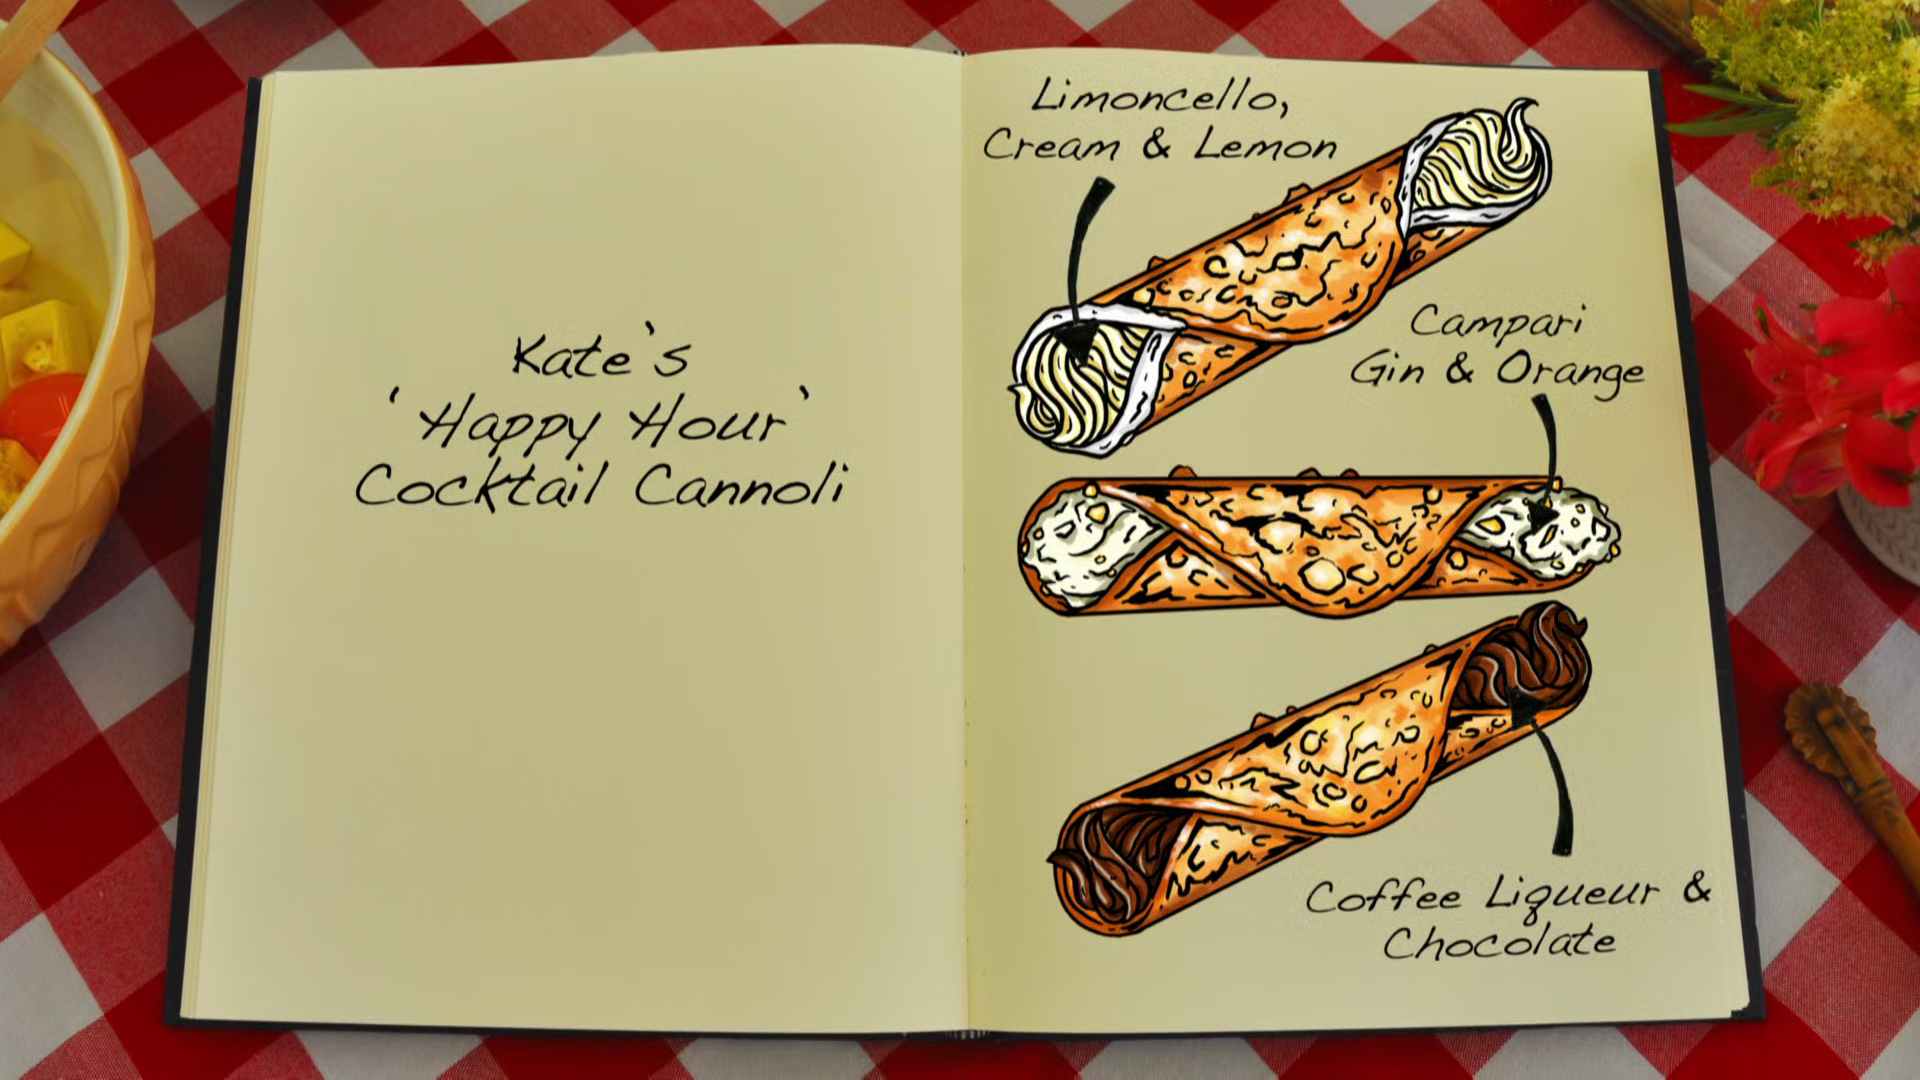 Kate's
'Happy Hour'
Cocktail Cannoli
Limoncello,
Cream & Lemon
Campari
Gin & Orange
Coffee Liqueur &
Chocolate